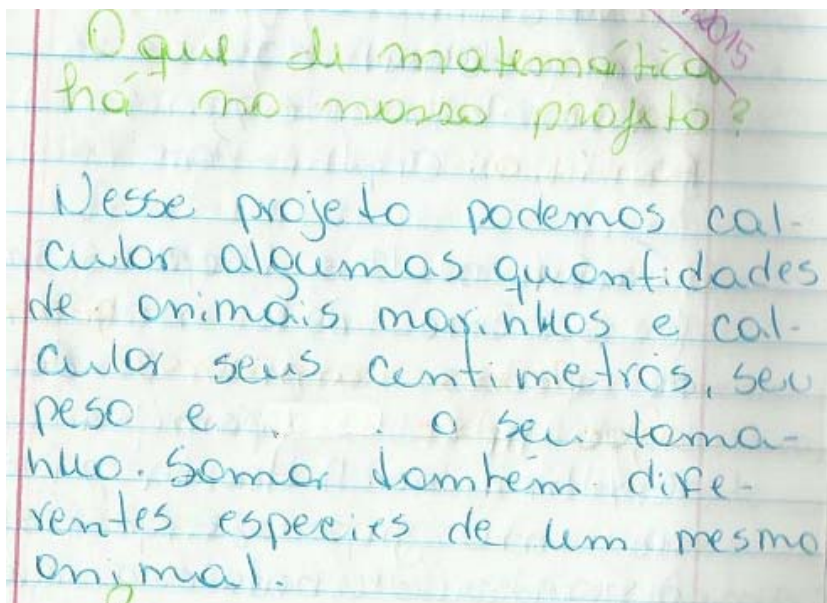 O que de matemática
há no nosso projeto?
2015
Nesse projeto podemos cal-
cular algumas quantidades
de animais marinhos e cal-
cular seus centimetros, seu
peso e . . o seu tama-
nho. Somar também dife-
rentes especies de um mesmo
animal.